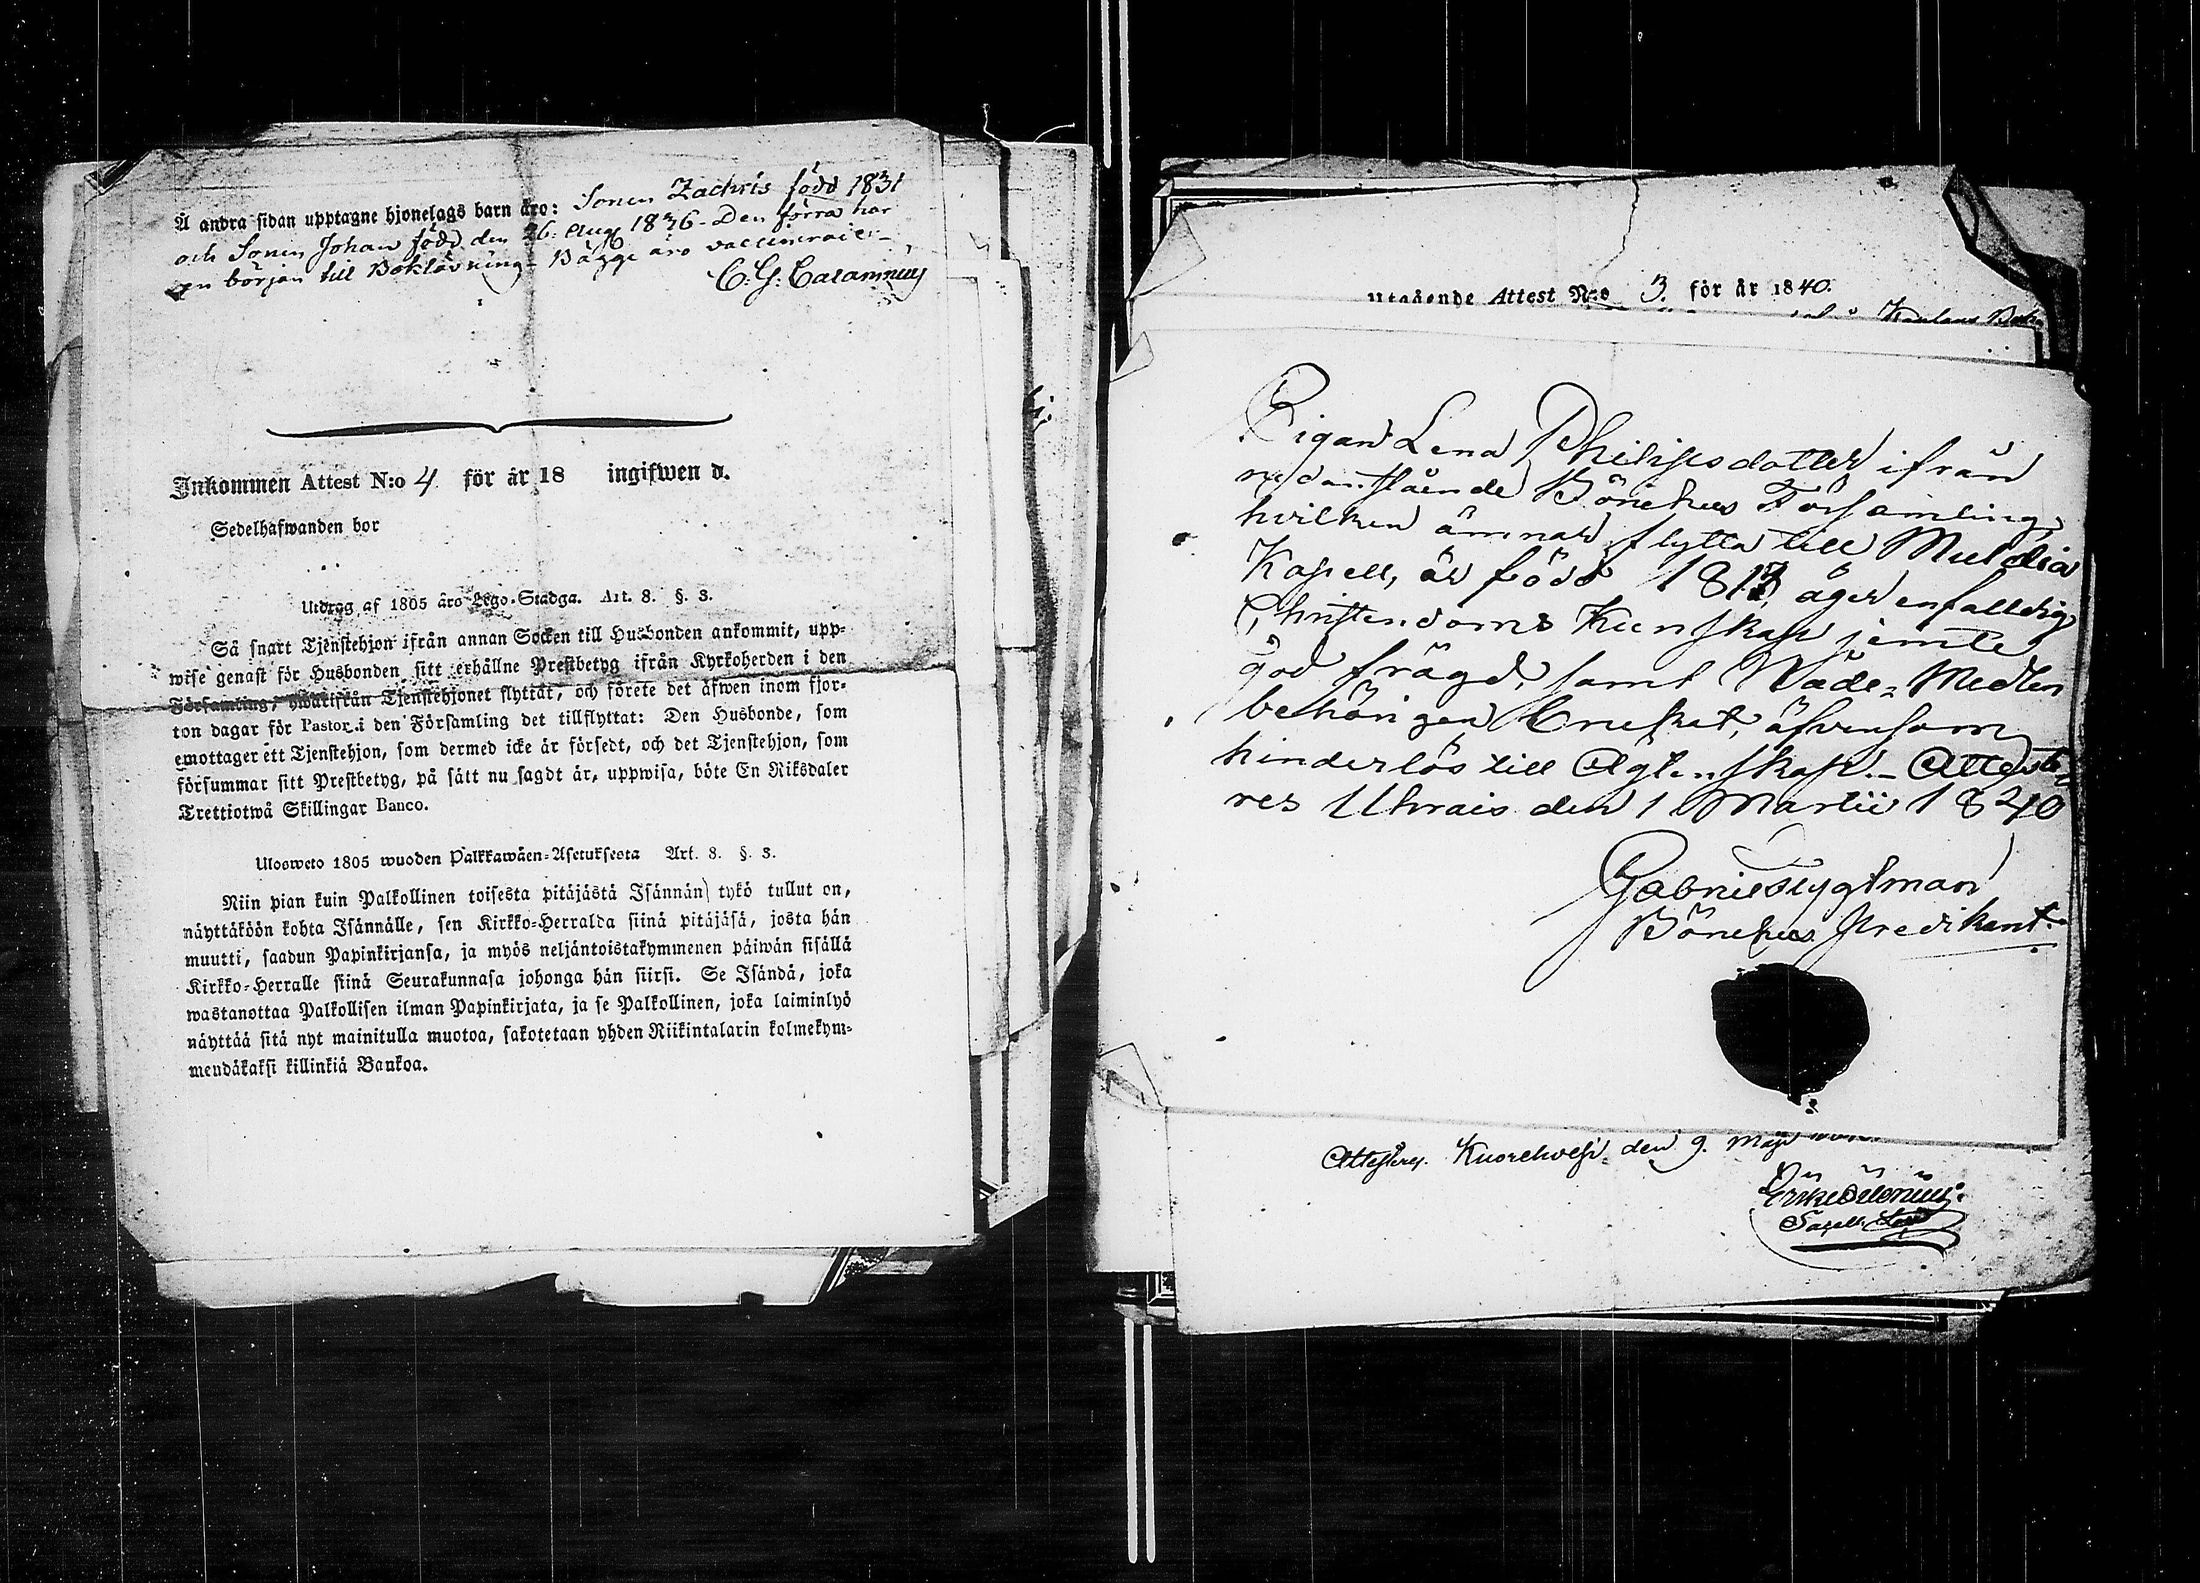 Å andra sidan upptagne hjonelags barn äro: Sonen Zachris född 1831
och Sonen Johan född den 26. Aug 1836 - Den förra har
en början till Bokläsning - Bägge äro vaccinerade -
C. G. Calamnius
Inkommen Attest N:o 4 för år 18 ingifwen d.
Sedelhafwanden bor
Utdrag af 1805 års Lego-Stadga. Art. 8. §. 3.
Så snart Tjenstehjon ifrån annan Socken till Husbonden ankommit, upp-
wise genast för Husbonden sitt erhållne Prestbetyg ifrån Kyrkoherden i den
Församling, hwarifrån Tjenstehjonet flyttat, och förete det äfwen inom fjor-
ton dagar för Pastor i den Församling det tillflyttat: Den Husbonde, som
emottager ett Tjenstehjon, som dermed icke är försedt, och det Tjenstehjon, som
försummar sitt Prestbetyg, på sätt nu sagdt är, uppwisa, böte En Riksdaler
Trettiotwå Skillingar Banco.
Ulosweto 1805 wuoden Palkkawäen-Asetuksesta Art. 8. §. 3.
Niin pian kuin Palkollinen toisesta pitäjästä Isännän tykö tullut on,
näyttäköön kohta Isännälle, sen Kirkko-Herralda siinä pitäjäsä, josta hän
muutti, saadun Papinkirjansa, ja myös neljäntoistakymmenen päiwän sisällä
Kirkko-Herralle siinä Seurakunnasa johonga hän siirsi. Se Isändä, joka
wastanottaa Palkollisen ilman Papinkirjata, ja se Palkollinen, joka laiminlyö
näyttää sitä nyt mainitulla muotoa, sakotetaan yhden Riikintalarin kolmekym-
mendäkaksi killinkiä Bankoa.
Utgående Attest N:o 3. för år 1840.
Pigan Lena Philipsdotter ifrån
nedanstående Bönehus Församling,
hvilken ämnar flytta till Muldia
Kapell, är född 1813, äger enfalldig
Christendoms Kunskap jemte
god frägd, samt Nåde-Medlen
behörigen brukat, äfvensom
hinderlös till Ägtenskap. - Atteste-
res Uhrais den 1 Martii 1840
Gabriel Tygtman
Bönehus Predikant.
Attesterar Kuorehvesi den 9. Maji